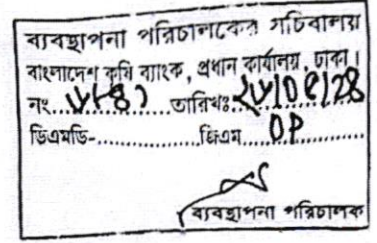 ব্যবস্থাপনা পরিচালকের সচিবালয়
বাংলাদেশ কৃষি ব্যাংক, প্রধান কার্যালয়, ঢাকা।
নং............তারিখঃ............
ডিএমডি-............জিএম OP
ব্যবস্থাপনা পরিচালক